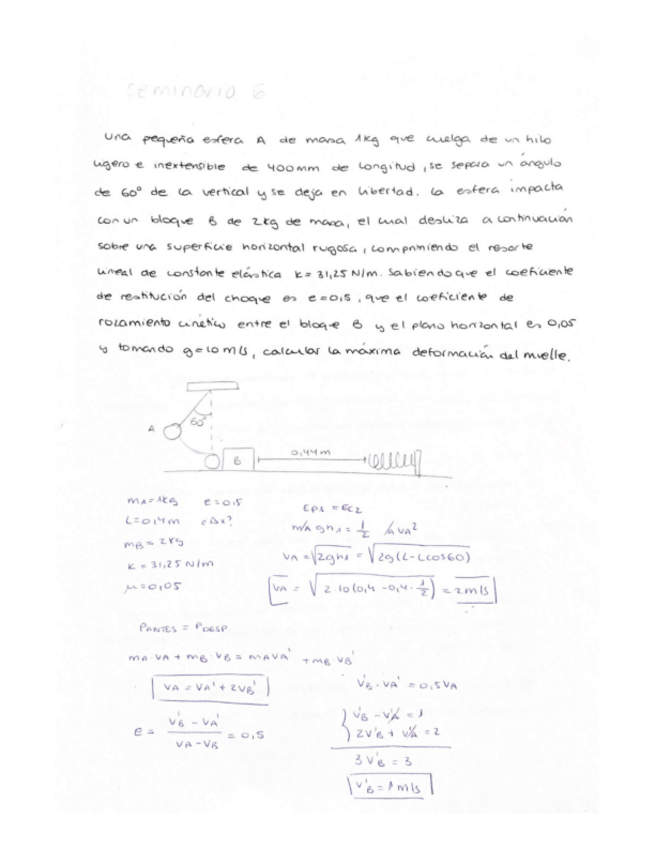 Seminario 6
Una pequeña esfera A de masa 1kg que cuelga de un hilo
ligero e inextensible de 400mm de longitud, se separa un ángulo
de 60° de la vertical y se deja en libertad. La esfera impacta
con un bloque B de 2kg de masa, el cual desliza a continuación
sobre una superficie horizontal rugosa, comprimiendo el resorte
lineal de constante elástica K = 31,25 N/m. Sabiendo que el coeficiente
de restitución del choque es e=0,5, que el coeficiente de
rozamiento cinético entre el bloque B y el plano horizontal es 0,05
y tomando g=10 m/s, calcular la máxima deformación del muelle.
60°
A
B
0,44m
mA=1kg e=0,5
L=0,4m ¿Δx?
mB=2kg
K=31,25 N/m
μ=0,05
EP1 = EC2
mA g h1 = 1/2 mA VA²
VA = √2gh1 = √2g(L-Lcos60)
VA = √2·10(0,4-0,4·1/2) = 2m/s
PANTES = PDESP
mA·VA + mB·VB = mAVA' + mB VB'
VA = VA' + 2VB'
e = (V'B - VA') / (VA - VB) = 0,5
V'B - VA' = 0,5VA
V'B - V'A = 1
2V'B + V'A = 2
3V'B = 3
V'B = 1 m/s